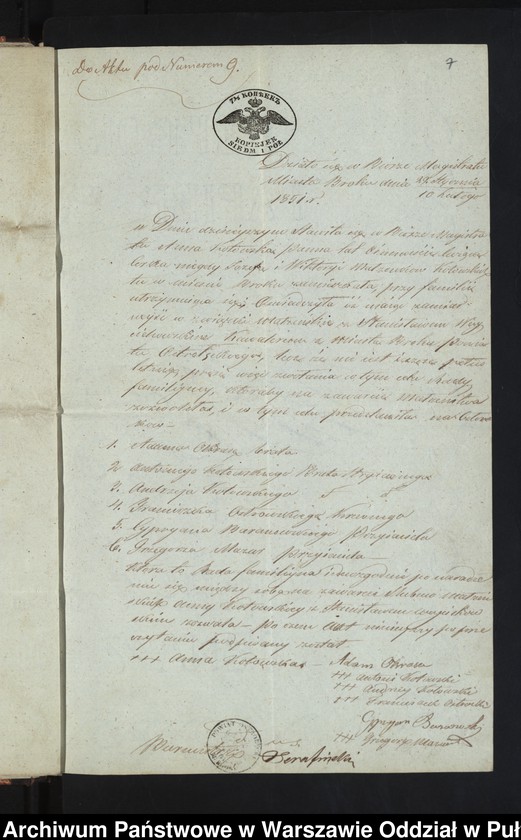 Do Aktu pod Numerem 9.
7
7½ KOПѢEKЪ
KOPIEJEK
SIEDM I PÓŁ
Działo się w Biórze Magistratu
Miasta Broku dnia Stycznia
10 Lutego
1851 r.
w Dniu dzisiejszym Stawiła się w Biórze Magistra-
tu Anna Kotowska panna lat
córka między Józefa i Wiktoryi Małżonków Kotowskich
tu w mieście Broku zamieszkała, przy familii
utrzymująca się, Oświadczyła iż mając zamiar
wyjść w związek małżeński z Stanisławem
Kawalerem z Miasta Broku Powia-
tu Ostrołęckiego, lecz że nie jest jeszcze pełno
letnią, przeto zwołania w tym celu Rady
familijnej, któraby na zawarcie Małżeństwa
zezwoliła, i w tym celu przedstawiła na Człon-
ków—
1. Adama Okrasę
2. Antoniego Kotowskiego Brata Stryjecznego
3. Andrzeja Kotowskiego
4. Franciszka Ostrowskiego Krewnego
5. Cypryana Baranowskiego Przyjaciela
6. Grzegorza Mazas przyjaciela—
która to Rada familijna jednozgodnie po naradze-
niu się między sobą na zawarcie Ślubu małżeń-
skiego Anny Kotowskiej z Stanisławem
zezwala— po czem Akt niniejszy po prze-
czytaniu podpisany został
+++ Anna Kotowska— Adam Okrasa
+++ Antoni Kotowski
+++ Andrzej Kotowski
+++ Franciszek Ostrowski
Cypryan Baranowski
+++ Grzegorz Mazas
Burmistrz
Serafiński
Archiwum Państwowe w Warszawie Oddział w Puł